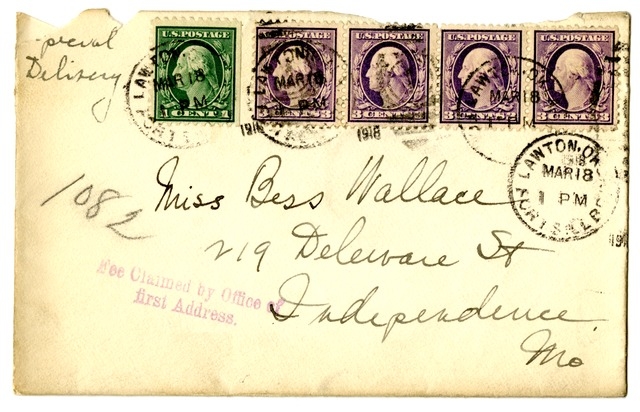 Special
Delivery
U.S. POSTAGE
U.S. POSTAGE
U.S. POSTAGE
U.S. POSTAGE
U.S. POSTAGE
3 CENTS 3
3 CENTS 3
3 CENTS 3
3 CENTS 3
LAWTON
MAR 18
PM
1918
LAWTON, OK
MAR 18
1 PM
1918
LAWTON, OK
MAR 18
1 PM
LAWTON, OK
1918
MAR 18
1 PM
FORT SILL
1082
Miss Bess Wallace
219 Deleware St
Independence
Mo
Fee Claimed by Office of
first Address.